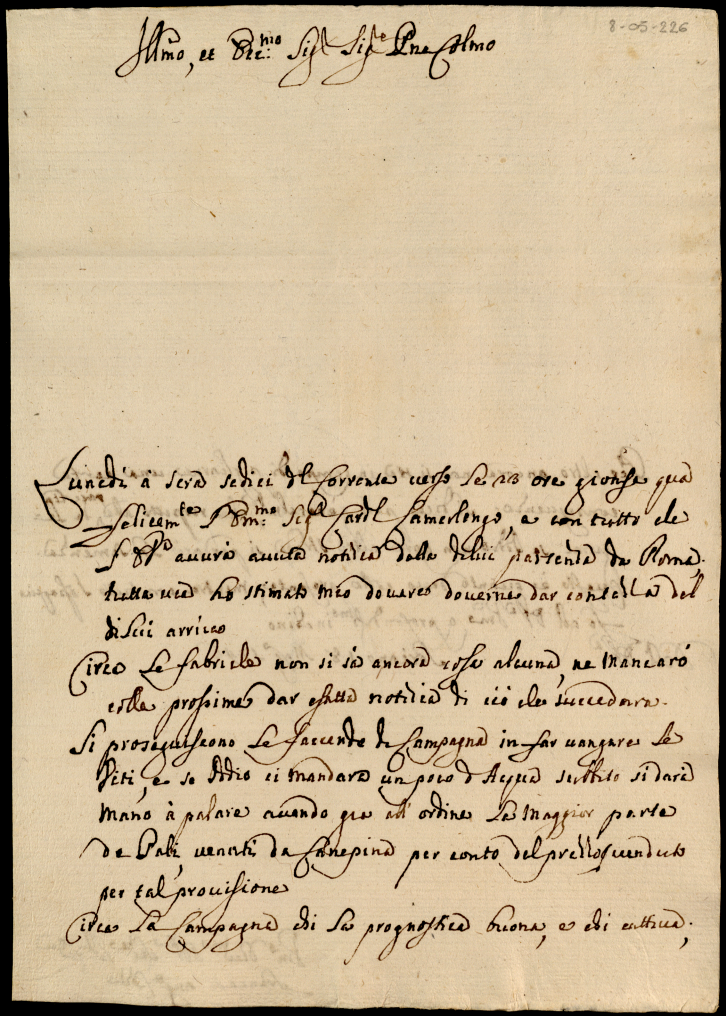 8-05-226
Illmo, et Ecc:mo Sig.r Sig.e Pne Colmo
Lunedì à sera sedici del Corrente verso le 23 ore gionse qua
felicem:te l'Em:mo Sig.r Card.l Camerlengo, e con tutto che
avurà avuta notitia della di lui partenza da Roma,
tutta via ho stimato mio dovere doverne dar contezza del
di Lui arrivo
Circa Le fabriche non si sà ancora cosa alcuna, ne mancarò
colle prossime dar esatta notitia di ciò che succederà.
Si proseguiscono Le faccende di Campagna in far vangare Le
Viti, e se Iddio ci mandarà un poco d'Acqua subbito si darà
mano à palare avendo già all'ordine La maggior parte
de Pali, venuti da Canepina per conto del prezzo venduto
per tal provisione
Circa La Campagna chi La prognostica buona, e chi cattiva,